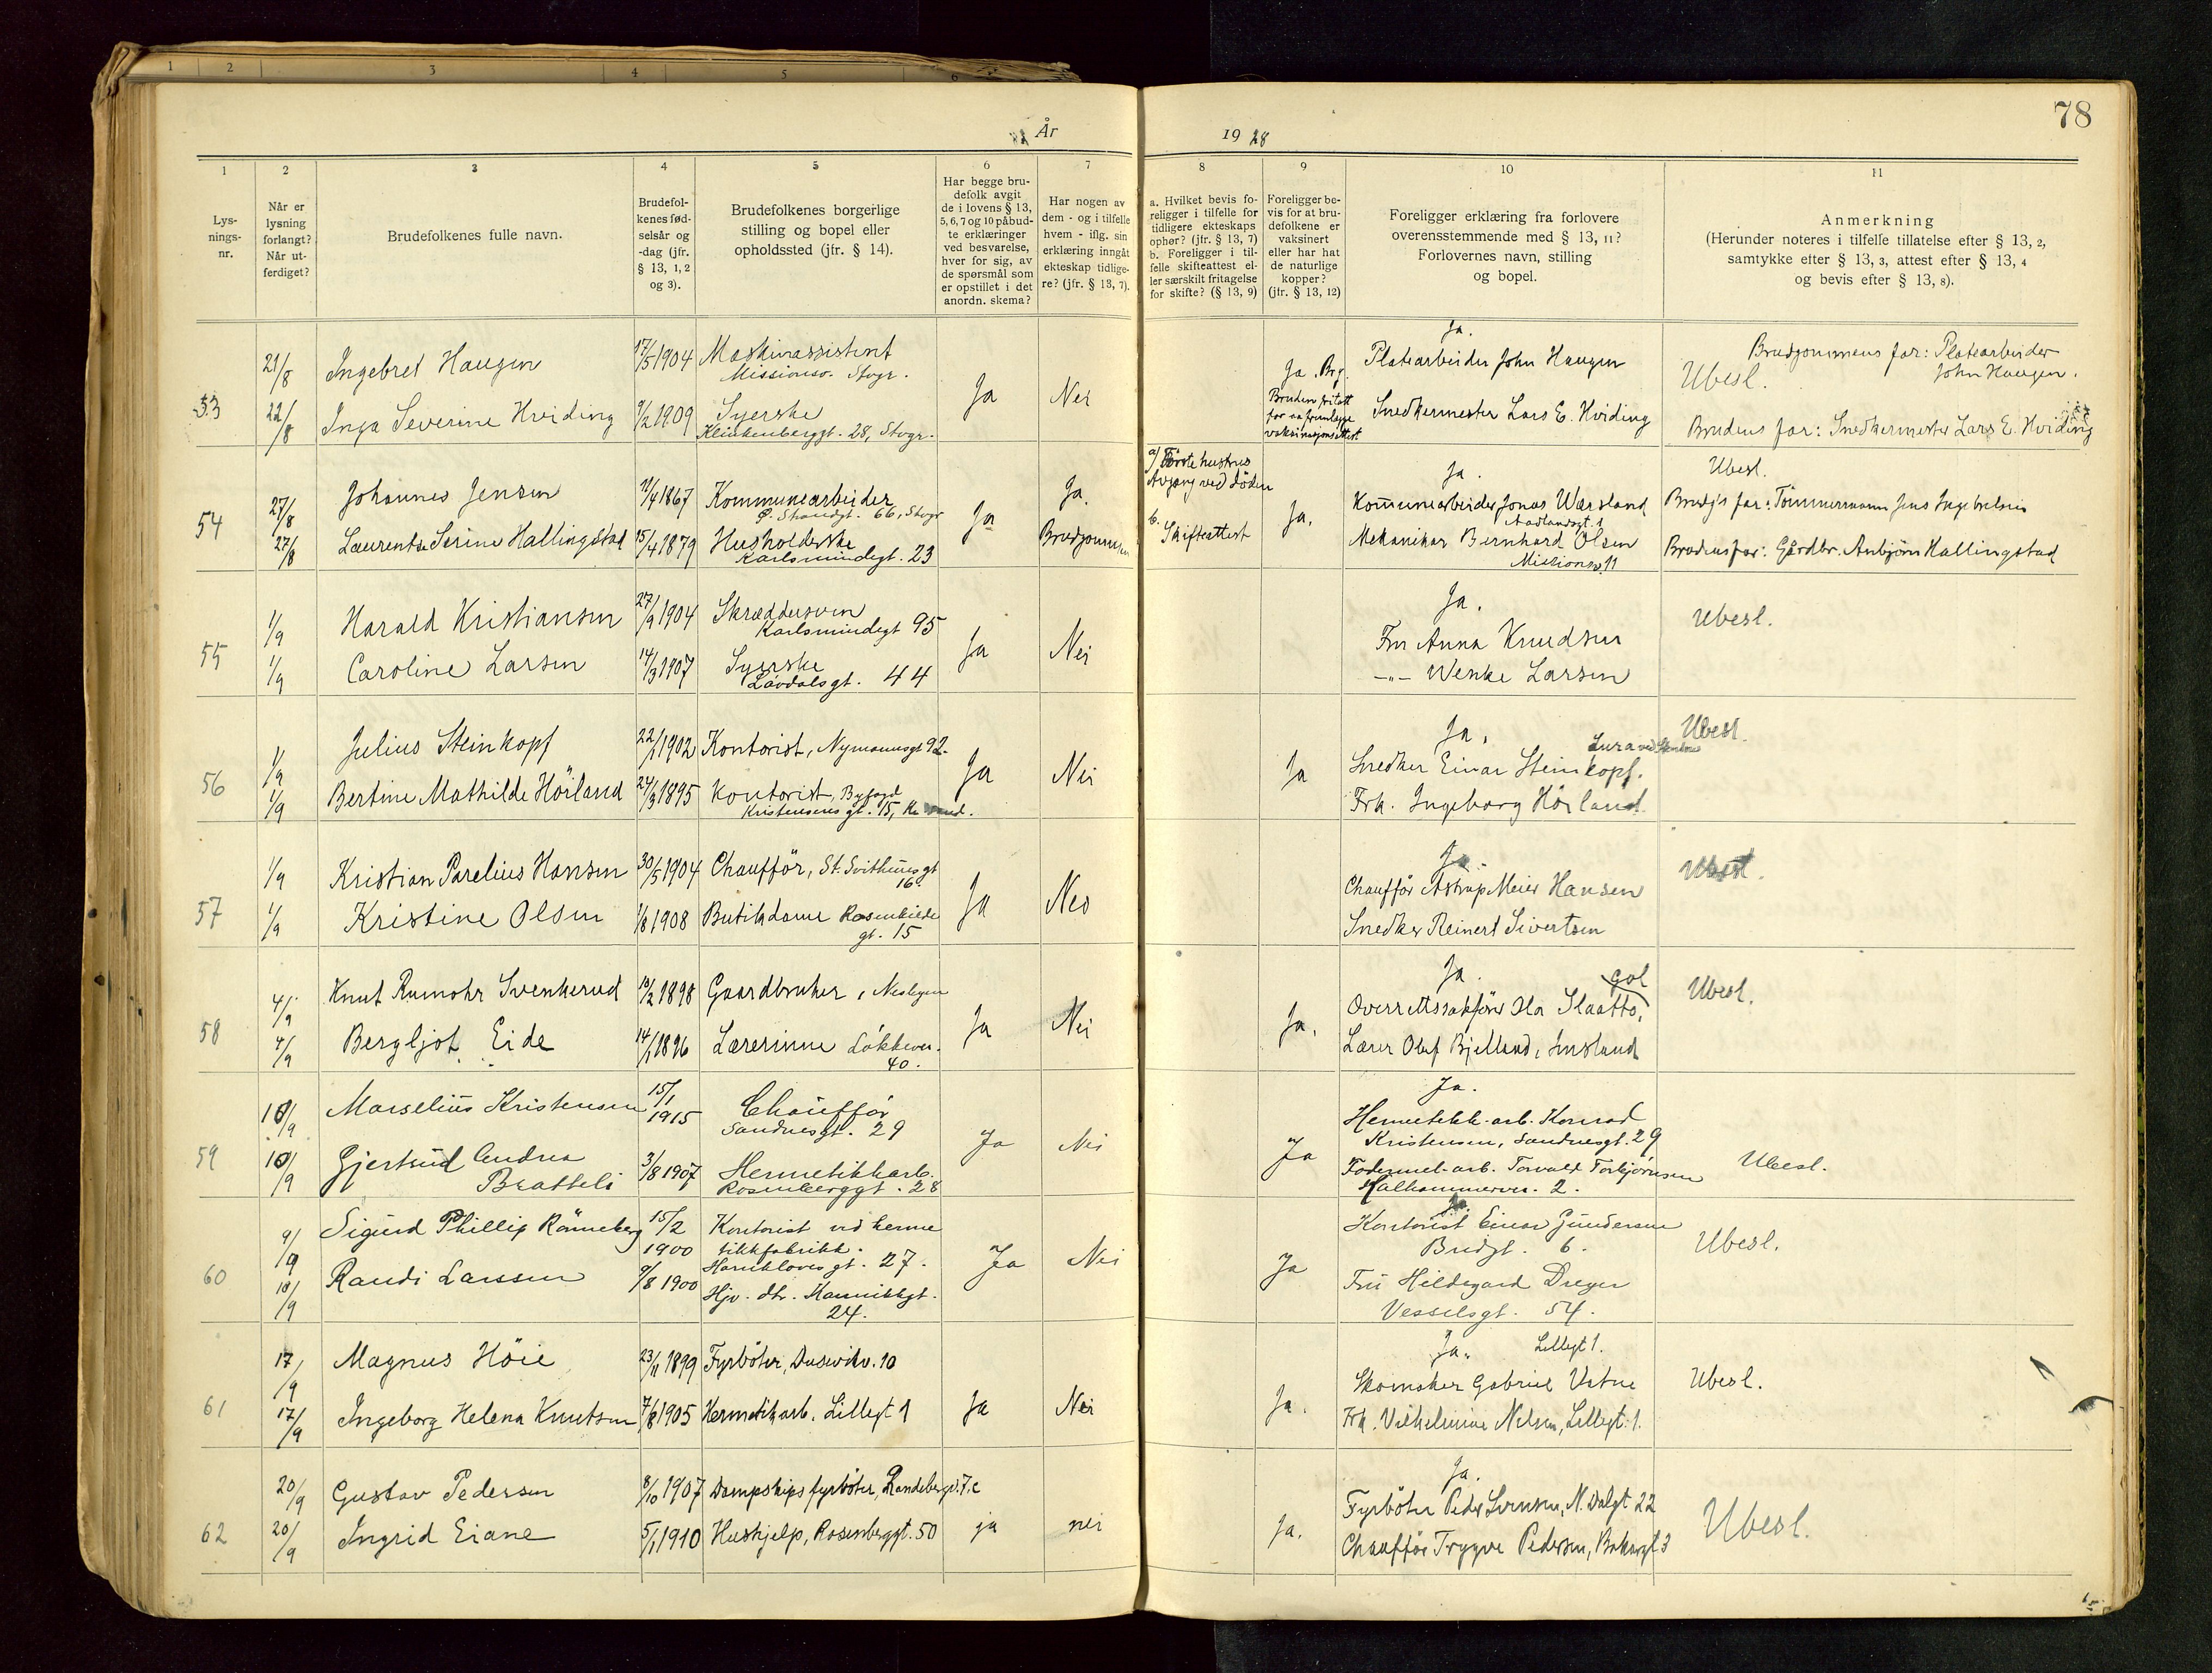 1 2 3 4 5 6
78
År
19 28
1
Lys-
nings-
nr.
2
Når er
lysning
forlangt?
Når ut-
ferdiget?
3
Brudefolkenes fulle navn.
4
Brudefol-
kenes fød-
selsår og
-dag (jfr.
§ 13, 1, 2
og 3).
5
Brudefolkenes borgerlige
stilling og bopel eller
opholdssted (jfr. § 14).
6
Har begge bru-
defolk avgit
de i lovens § 13,
5, 6, 7 og 10 påbud-
te erklæringer
ved besvarelse,
hver for sig, av
de spørsmål som
er opstillet i det
anordn. skema?
7
Har nogen av
dem - og i tilfelle
hvem - iflg. sin
erklæring inngåt
ekteskap tidlige-
re? (jfr. § 13, 7).
8
a. Hvilket bevis fo-
religger i tilfelle for
tidligere ekteskaps
ophør? (jfr. § 13, 7)
b. Foreligger i til-
felle skifteattest el-
ler særskilt fritagelse
for skifte? (§ 13, 9)
9
Foreligger be-
vis for at bru-
defolkene er
vaksinert
eller har hat
de naturlige
kopper?
(jfr. § 13, 12)
10
Foreligger erklæring fra forlovere
overensstemmende med § 13, 11?
Forlovernes navn, stilling
og bopel.
11
Anmerkning
(Herunder noteres i tilfelle tillatelse efter § 13, 2,
samtykke efter § 13, 3, attest efter § 13, 4
og bevis efter § 13, 8).
53
21/8
22/8
Ingebret Haugen
Inga Severine Hviding
17/5 1904
9/2 1909
Maskinassistent
Missionsv. Stvgr.
Syerske
Klinkenberggt. 28, Stvgr.
Ja
Nei
Ja. Brg.
Bruden fritatt
for aa fremlegge
vaksinasjonsattest
Ja.
Platearbeider John Haugen
Snedkermester Lars E. Hviding
Brudgommens far: Platearbeider
John Haugen.
Ubesl.
Brudens far: Snedkermester Lars E. Hviding
54
27/8
27/8
Johannes Jensen
Laurentse Serine Hallingstad
11/4 1867
15/4 1879
Kommunearbeider
Ø. Strandgt. 66, Stvgr
Husholderske
Karlsmindegt. 23
Ja
Ja.
Brudgommen
a) Første hustrus
Avgang ved döden
b. Skifteattest
Ja.
Ja.
Kommunearbeider Jonas Warsland
Aadlandsgt. 1
Mekaniker Bernhard Olsen
Missionsv. 11
Ubesl.
Brudg's far: Tömmermann Jens Ingebretsen
Brudens far: Gårdbr. Anbjörn Hallingstad
55
1/9
1/9
Harald Kristiansen
Caroline Larsen
27/9 1904
14/3 1907
Skreddersven
Karlsmindegt 95
Syerske
Lövdalsgt. 44
Ja
Nei
Ja.
Fru Anna Knudsen
-"- Wenke Larsen
Ubesl.
56
1/9
1/9
Julius Steinkopf
Bertine Mathilde Hörland
22/1 1902
24/3 1895
Kontorist, Nymannsgt 92.
Kontorist, Byfogd
Kristensens gt. 15, Kr sund.
Ja
Nei
Ja
Ja.
Lura ved
Snedker Einar Steinkopf.
Frk. Ingeborg Hörland.
Ubesl.
57
1/9
1/9
Kristian Parelius Hansen
Kristine Olsen
30/5 1904
1/8 1908
Chaufför, St. Svithuns gt
16.
Butikdame Rosenkilde
gt. 15
Ja
Nei
Ja.
Chaufför Astrup Meier Hansen
Snedker Reinert Sivertsen
Ubesl.
58
4/9
4/9
Knut Rumohr Svenkerud
Bergljot Eide
10/2 1898
14/1 1896
Gaardbruker, Nesbyen
Lærerinne Lökkevei.
40.
Ja
Nei
Ja.
Ja.
Gol
Overrettssakförer Ola Slaatto,
Lærer Olaf Bjelland, Imsland
Ubesl.
59
10/9
10/9
Marselius Kristensen
Gjertrud Andrea
Bratteli
15/1
1915
3/8 1907
Chaufför
Sandnesgt. 29
Hermetikkarb.
Rosenberggt. 28
Ja
Nei
Ja
Ja.
Hermetikk-arb. Konrad
Kristensen, Sandnesgt. 29
Fodermel-arb. Torvald Torbjörnsen
Kalhammerven. 2.
Ubesl.
60
9/9
10/9
Sigurd Phillip Rönneberg
Randi Larssen
15/2
1900
9/8 1900
Kontorist ved herme
tikkfabrikk.
Haraklovesgt. 27.
Hjv. dtr. Hannikkgt.
24.
Ja
Nei
Ja
Ja.
Kontorist Einar Gundersen
Bredgt. 6.
Fru Hildegard Dreyer
Vesselsgt. 54.
Ubesl.
61
17/9
17/9
Magnus Höie
Ingeborg Helena Knutsen
23/11 1899
7/8 1905
Fyrböter, Dusevikv. 10
Hermetikarb. Lillegt 1
Ja
Nei
Ja.
Ja.
Lillegt 1.
Skomaker Gabriel Vatne
Frk. Vilhelmine Nelsen, Lillegt. 1.
Ubesl.
62
20/9
20/9
Gustav Pedersen
Ingrid Eiane
8/10 1907
5/1 1910
Dampskipsfyrböter, Randabergv. 7.c
Hushjelp, Rosenberggt. 50
ja
nei
Ja.
Ja.
Fyrböter Peder Svensen, N. Dalgt 22
Chaufför Trygve Pedersen, Bakergt 3
Ubesl.